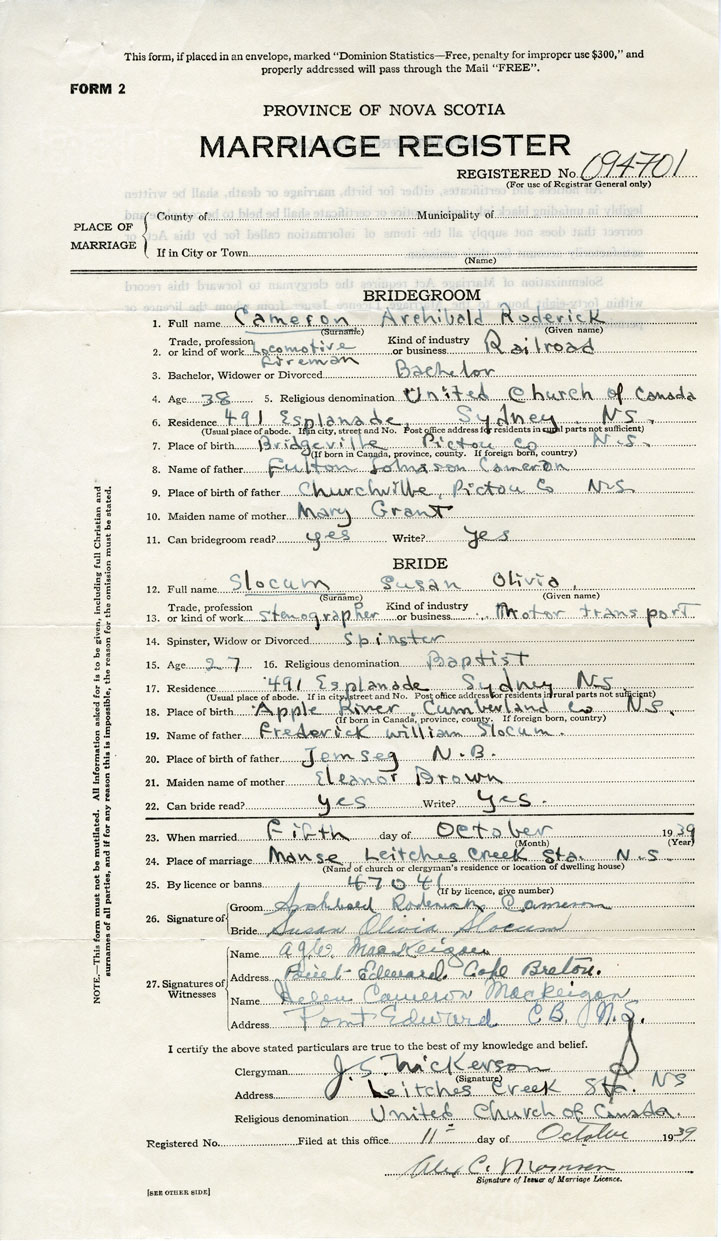 This form, if placed in an envelope, marked "Dominion Statistics—Free, penalty for improper use $300," and
properly addressed will pass through the Mail "FREE".
FORM 2
PROVINCE OF NOVA SCOTIA
MARRIAGE REGISTER
REGISTERED No. 094701
(For use of Registrar General only)
PLACE OF MARRIAGE
County of Municipality of
If in City or Town
(Name)
BRIDEGROOM
1. Full name Cameron Archibald Roderick
(Surname) (Given name)
2. Trade, profession or kind of work Locomotive Fireman Kind of industry or business Railroad
3. Bachelor, Widower or Divorced Bachelor
4. Age 38 5. Religious denomination United Church of Canada
6. Residence 491 Esplanade, Sydney N.S.
(Usual place of abode. If in city, street and No. Post office address for residents in rural parts not sufficient)
7. Place of birth Bridgeville Pictou Co N.S.
(If born in Canada, province, county. If foreign born, country)
8. Name of father Fulton Johnson Cameron
9. Place of birth of father Churchville, Pictou Co N.S
10. Maiden name of mother Mary Grant
11. Can bridegroom read? yes Write? yes
BRIDE
12. Full name Slocum Susan Olivia,
(Surname) (Given name)
13. Trade, profession or kind of work stenographer Kind of industry or business Motor transport
14. Spinster, Widow or Divorced Spinster
15. Age 27 16. Religious denomination Baptist
17. Residence 491 Esplanade Sydney N.S
(Usual place of abode. If in city, street and No. Post office address for residents in rural parts not sufficient)
18. Place of birth Apple River, Cumberland Co N.S.
(If born in Canada, province, county. If foreign born, country)
19. Name of father Frederick William Slocum.
20. Place of birth of father Jemseg N.B.
21. Maiden name of mother Eleanor Brown
22. Can bride read? yes Write? yes.
23. When married Fifth day of October 1939
(Month) (Year)
24. Place of marriage Manse Leitches Creek Sta. N.S.
(Name of church or clergyman's residence or location of dwelling house)
25. By licence or banns 47041
(If by licence, give number)
26. Signature of
Groom Archibald Roderick Cameron
Bride Susan Olivia Slocum
27. Signatures of Witnesses
Name MacKeigan
Address Point Edward Cape Breton.
Name Helen Cameron MacKeigan
Address Point Edward C.B. N.S.
I certify the above stated particulars are true to the best of my knowledge and belief.
Clergyman J.S. Nickerson
(Signature)
Address Leitches Creek Sta. NS
Religious denomination United Church of Canada.
Registered No. Filed at this office 11 day of October 1939
Alex C.
Signature of Issuer of Marriage Licence.
[SEE OTHER SIDE]
NOTE.—This form must not be mutilated. All Information asked for is to be given, including full Christian and
surnames of all parties, and if for any reason this is impossible, the reason for the omission must be stated.